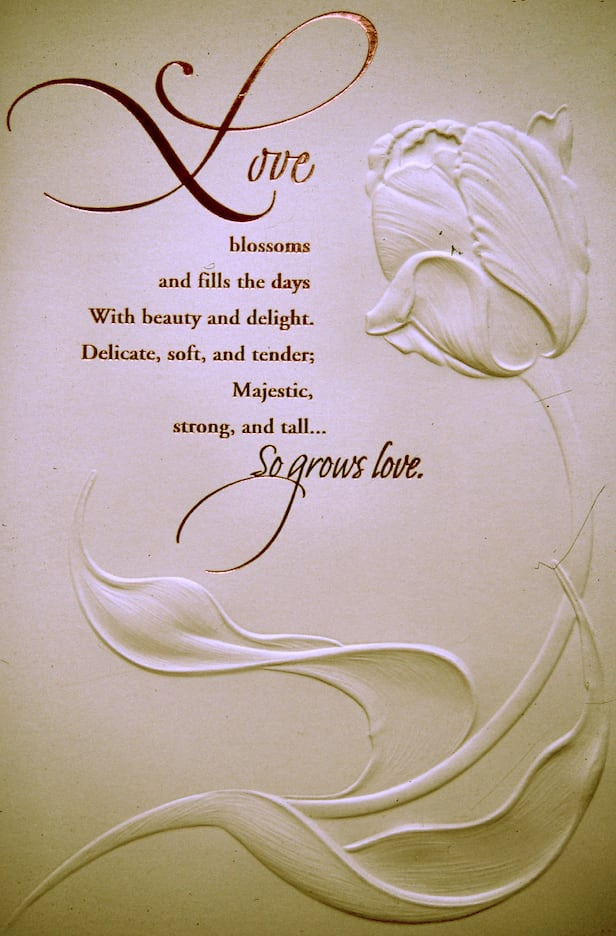 Love
blossoms
and fills the days
With beauty and delight.
Delicate, soft, and tender;
Majestic,
strong, and tall...
So grows love.